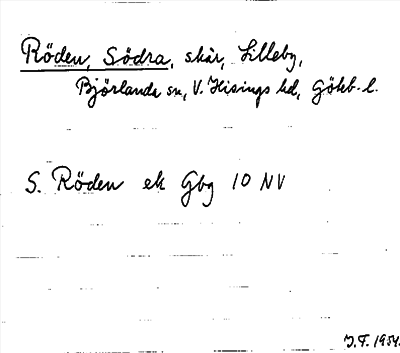 Röden, Södra, skär, Lilleby,
Björlanda sn, V. Hisings hd, Göteb. l.
S. Röden ek Gbg 10 NV
J.F. 1954.